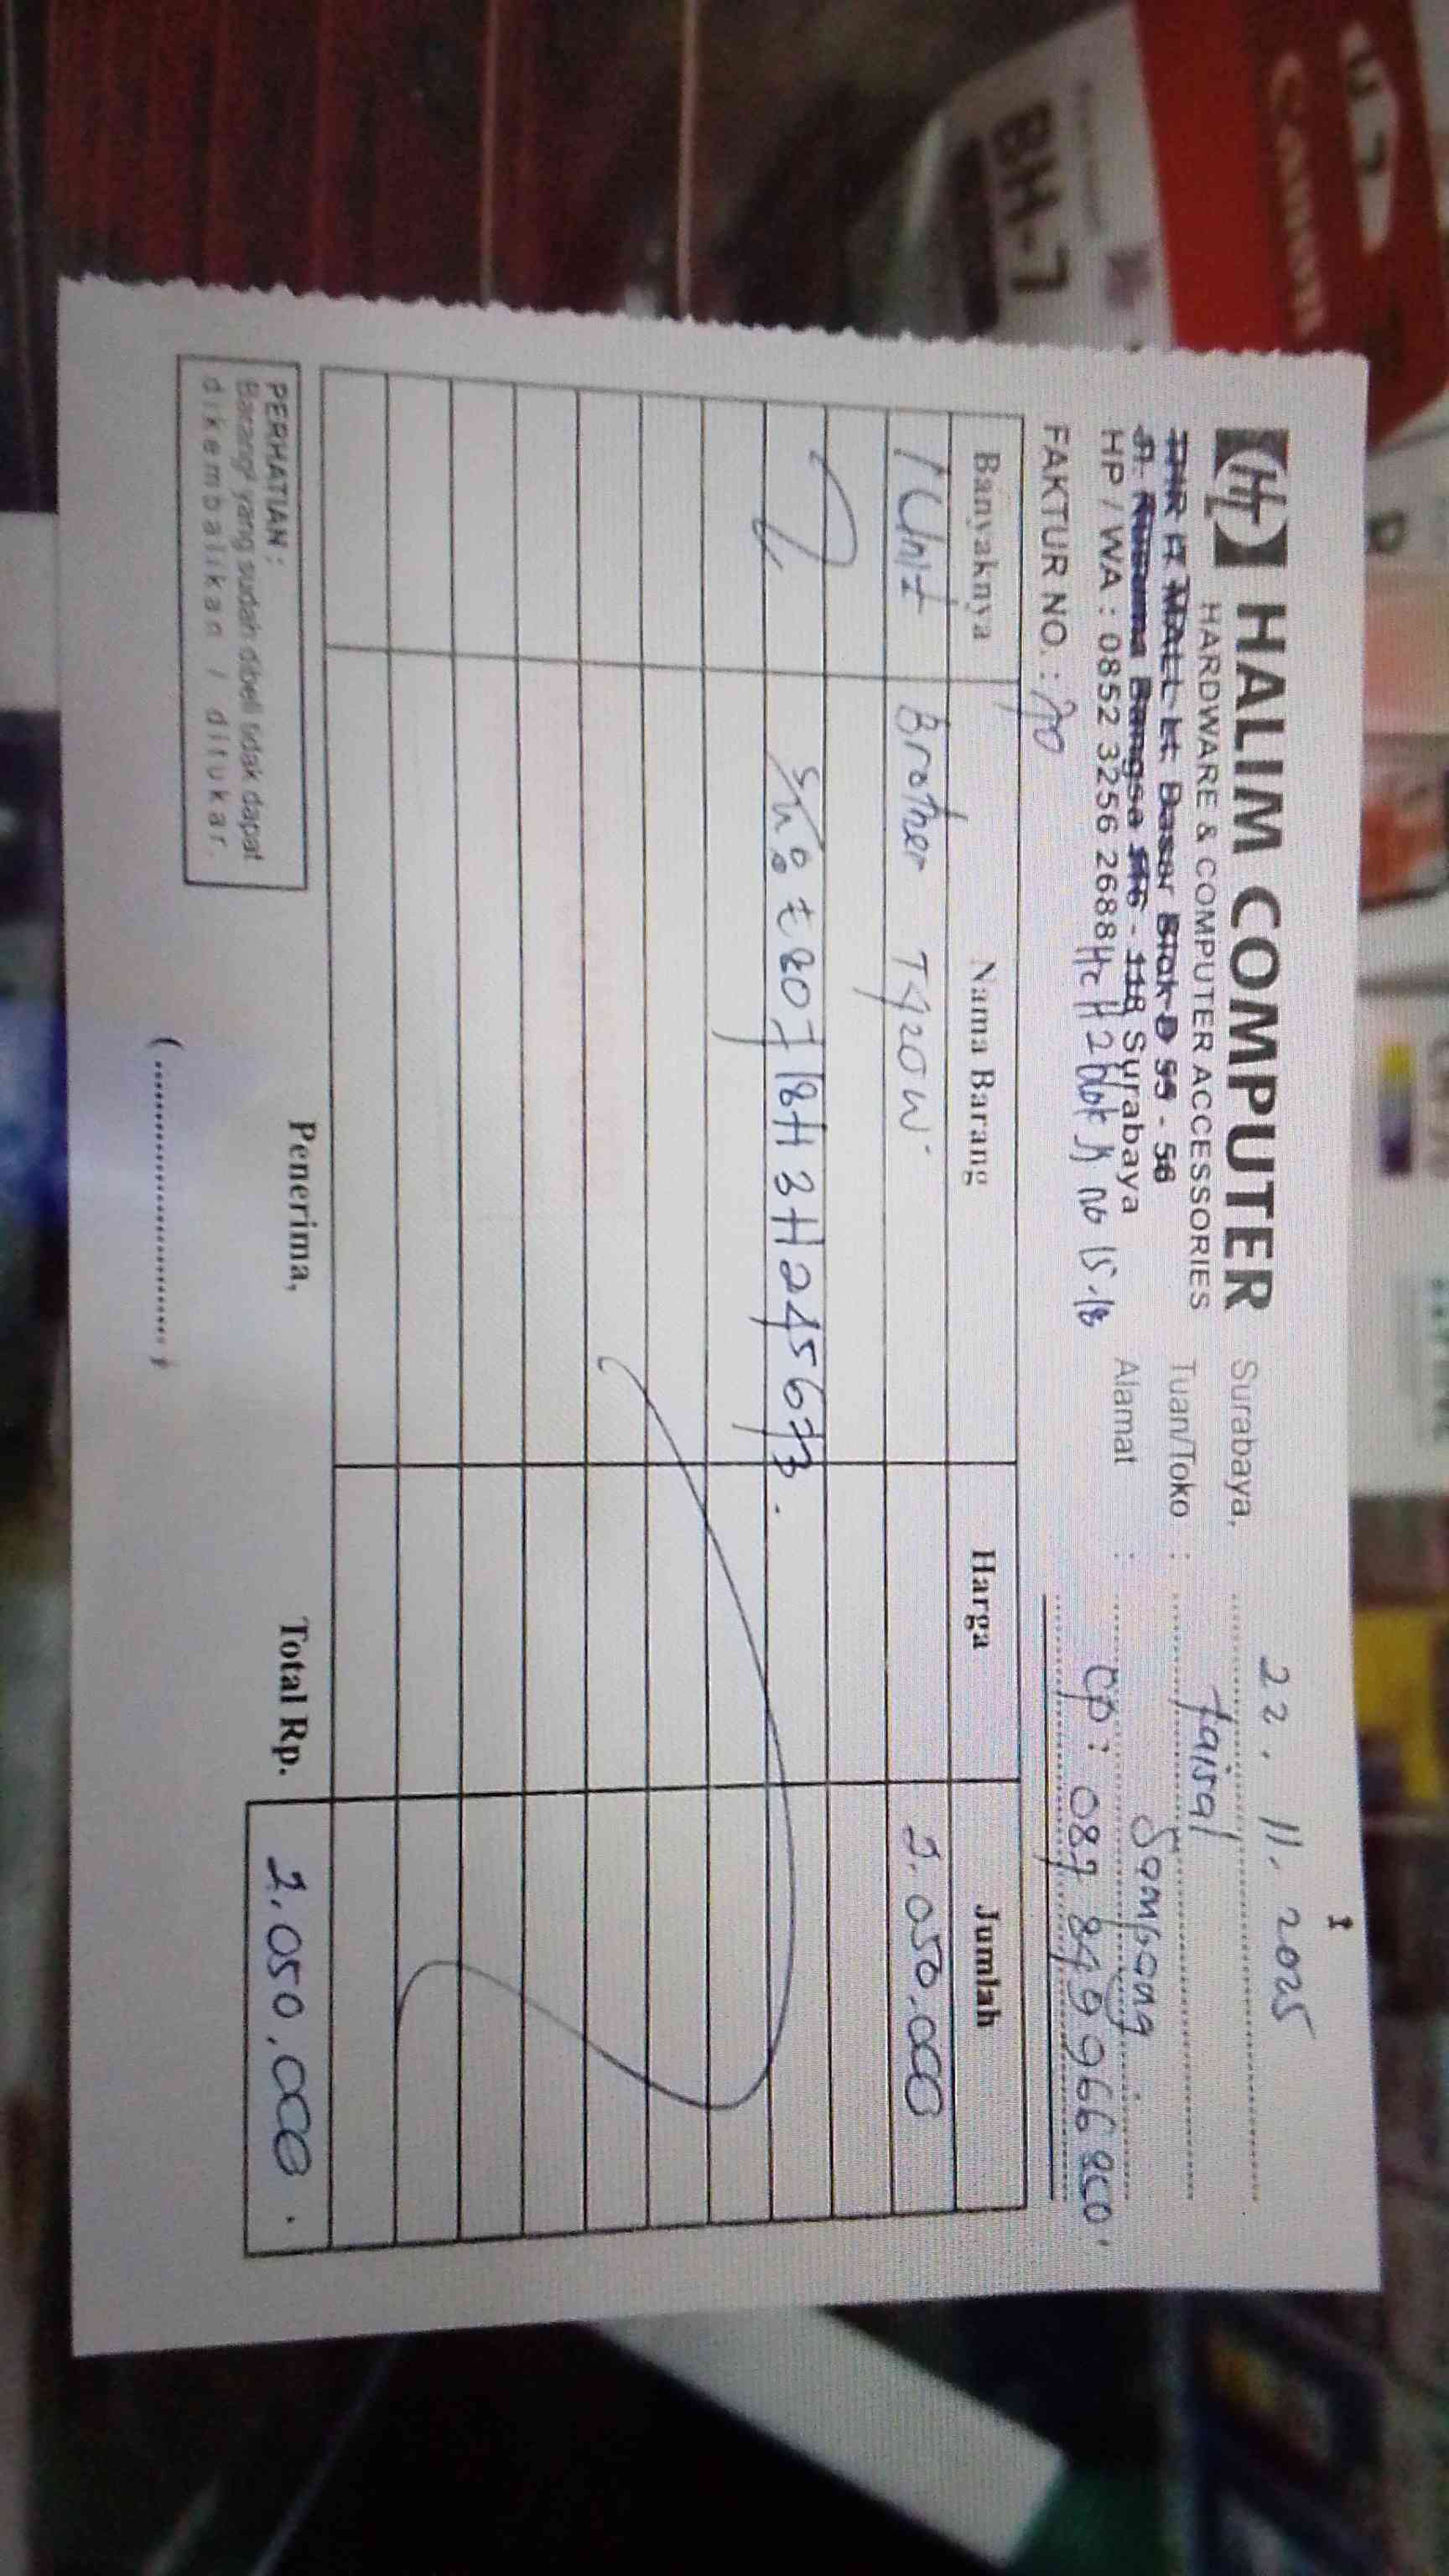 HALIM COMPUTER
HARDWARE & COMPUTER ACCESSORIES
THR IT MALL Lt. Dasar Blok D 55 - 56
Jl. Kusuma Bangsa 116 - 118 Surabaya
HP / WA : 0852 3256 2688 Hc Lt 2 blok K no 15-18
FAKTUR NO. :
Surabaya, 22. 11. 2025
Tuan/Toko : faisal
Alamat : Sampang
cp : 087 849 966 800.
Banyaknya Nama Barang Harga Jumlah
1 Unit Brother T420W 2.050.000
Sn: E80718H3H245673.
PERHATIAN :
Barang² yang sudah dibeli tidak dapat
dikembalikan / ditukar.
Penerima,
(........................)
Total Rp. 2.050.000.
BH-7
Canon